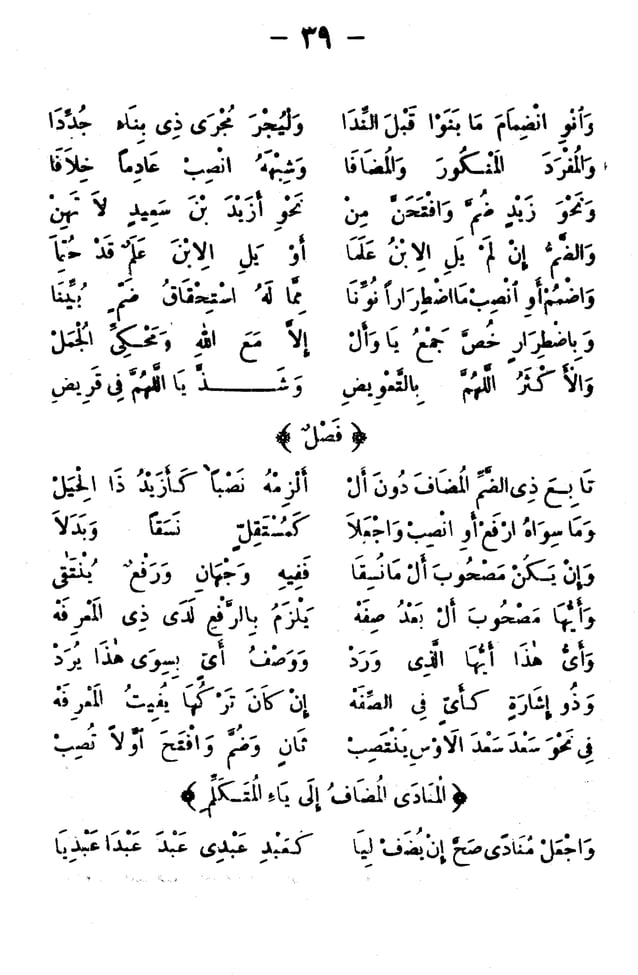 — ٣٩ —
وَٱنْوِ انْضِمَامَ مَا بَنَوْا قَبْلَ النِّدَا وَلْيُجْرَ مُجْرَى ذِى بِنَاءٍ جُدِّدَا
وَالْمُفْرَدَ الْمَنْكُورَ وَالْمُضَافَا وَشِبْهَهُ انْصِبْ عَادِماً خِلَافَا
وَنَحْوَ زَيْدٍ ضُمَّ وَافْتَحَنَّ مِنْ نَحْوِ أَزَيْدَ بْنَ سَعِيدٍ لاَ تَهِنْ
وَالضَّمُّ إِنْ لَمْ يَلِ الِابْنُ عَلَمَا أَوْ يَلِ الِابْنَ عَلَمٌ قَدْ حُتِمَا
وَاضْمُمْ أَوِ ٱنْصِبْ مَا اضْطِرَاراً نُوِّنَا مِمَّا لَهُ اسْتِحْقَاقُ ضَمٍّ بُيِّنَا
وَبِاضْطِرَارٍ خُصَّ جَمْعُ يَا وَأَلْ إِلاَّ مَعَ اللهِ وَمَحْكِىِّ الْجُمَلْ
وَالْأَكْثَرُ اللّٰهُمَّ بِالتَّعْوِيضِ وَشَذَّ يَا اللّٰهُمَّ فِى قَرِيضِ
﴿ فَصْلٌ ﴾
تَابِعَ ذِى الضَّمِّ الْمُضَافَ دُونَ أَلْ أَلْزِمْهُ نَصْباً كَأَزَيْدُ ذَا الْحِيَلْ
وَمَا سِوَاهُ ارْفَعْ أَوِ انْصِبْ وَاجْعَلاَ كَمُسْتَقِلٍّ نَسَقاً وَبَدَلاَ
وَإِنْ يَكُنْ مَصْحُوبَ أَلْ مَا نُسِقَا فَفِيهِ وَجْهَانِ وَرَفْعٌ يُنْتَقَى
وَأَيُّهَا مَصْحُوبَ أَلْ بَعْدُ صِفَهْ يَلْزَمُ بِالرَّفْعِ لَدَى ذِى الْمَعْرِفَهْ
وَأَىُّ هٰذَا أَيُّهَا الَّذِى وَرَدْ وَوَصْفُ أَىٍّ بِسِوَى هٰذَا يُرَدْ
وَذُو إِشَارَةٍ كَأَىٍّ فِى الصِّفَهْ إِنْ كَانَ تَرْكُهَا يُفِيتُ الْمَعْرِفَهْ
فِى نَحْوِ سَعْدَ سَعْدَ الاَوْسِ يَنْتَصِبْ ثَانٍ وَضُمَّ وَافْتَحَ أَوَّلاً تُصِبْ
﴿ الْمُنَادَى الْمُضَافُ إِلَى يَاءِ الْمُتَكَلِّمِ ﴾
وَاجْعَلْ مُنَادًى صَحَّ إِنْ يُضَفْ لِيَا كَعَبْدِ عَبْدِى عَبْدَ عَبْدَا عَبْدِيَا